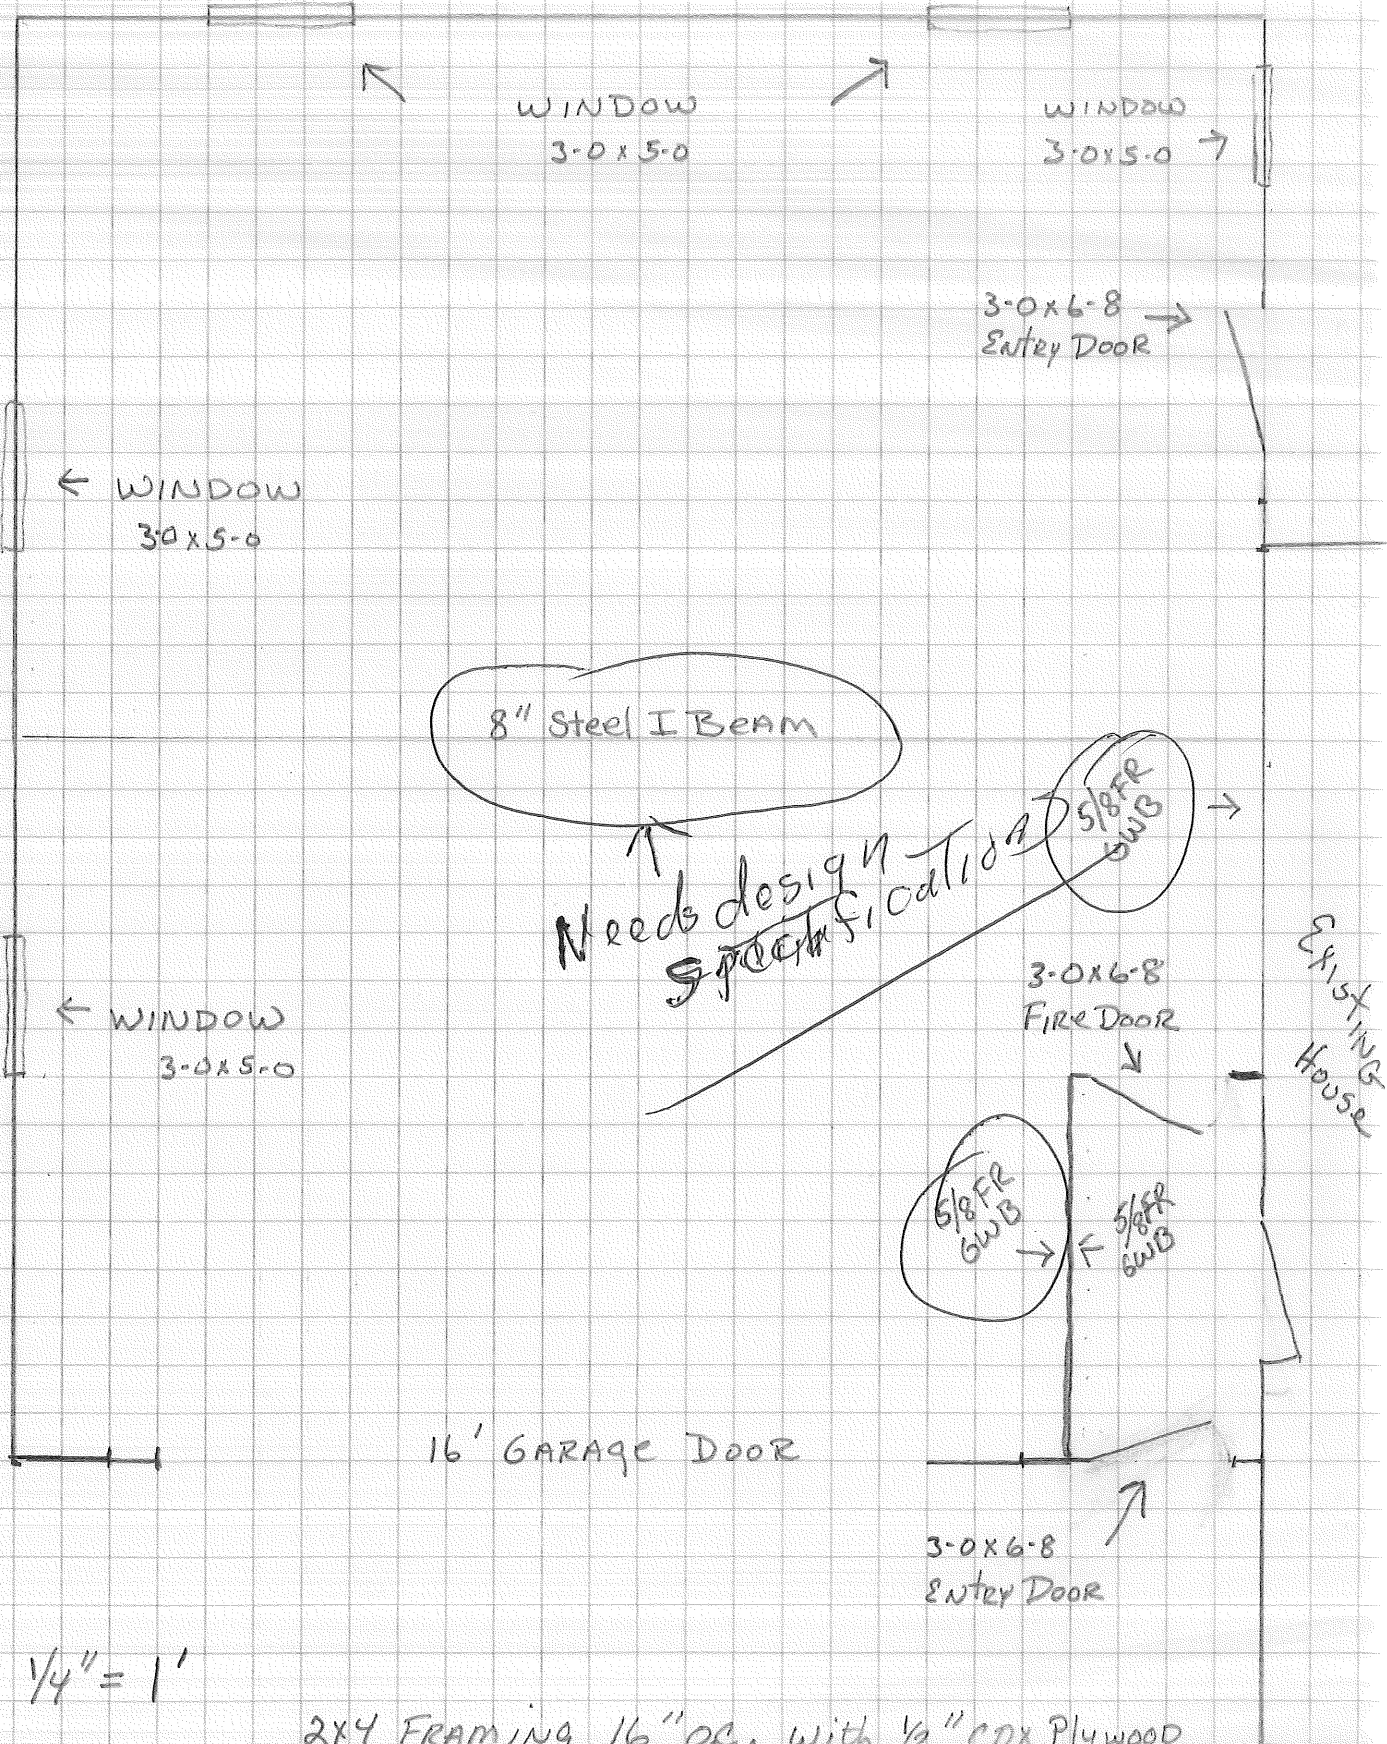 WINDOW
3-0 x 5-0
WINDOW
3-0x5-0
3-0x6-8
Entry Door
WINDOW
3-0 x 5-0
8" Steel I Beam
5/8 FR
GWB
Needs design
specification
3-0x6-8
Fire Door
Existing
House
WINDOW
3-0x5-0
5/8 FR
GWB
5/8 FR
GWB
16' Garage Door
3-0x6-8
Entry Door
1/4" = 1'
2x4 Framing 16" OC. With 1/2" CDX Plywood